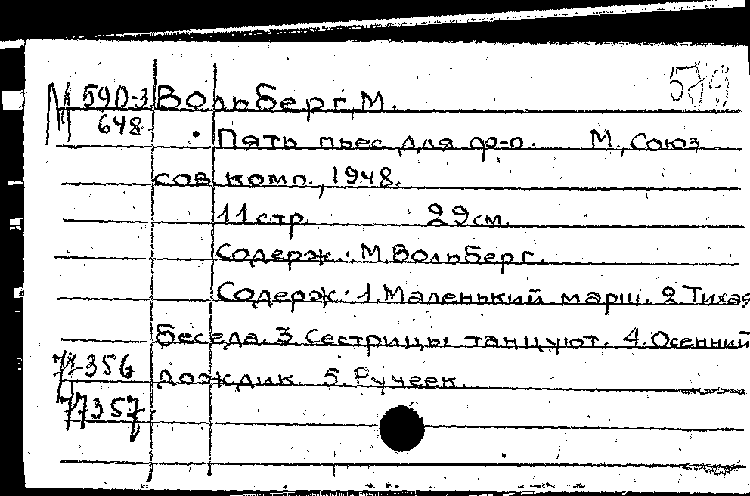 М 590-3 Вольберг, М. 579
648
Пять пьес для ф-п. М., Союз
сов. комп., 1948.
11 стр. 29 см.
Содерж.: М. Вольберг.
Содерж: 1. Маленький марш. 2. Тихая
беседа. 3. Сестрицы танцуют. 4. Осенний
77356 дождик. 5. Ручеек.
77357